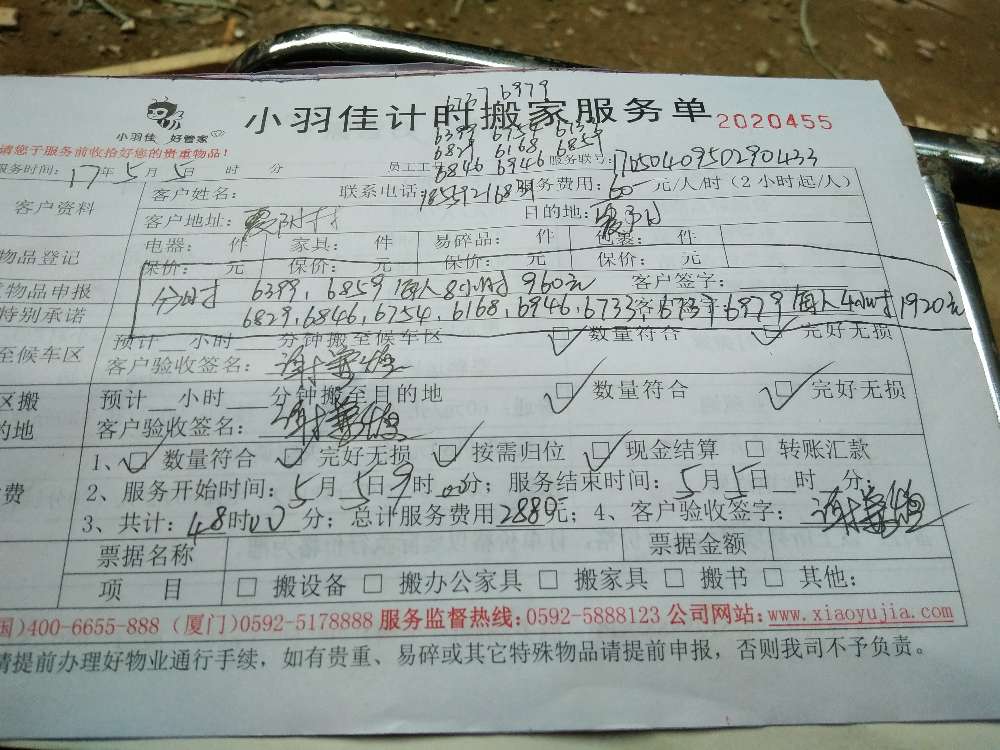 6737 6979
小羽佳计时搬家服务单 2020455
小羽佳 好管家
6399 6754 6733
6829 6168 6859
请您于服务前收拾好您的贵重物品!
6846 6946
服务时间: 17年5月5日 时 分 员工工号 服务联号: 765040950290433
客户资料
客户姓名: 联系电话: 服务费用: 60 元/人/时(2小时起/人)
客户地址: 目的地:
物品登记
电器: 件 家具: 件 易碎品: 件 包裹: 件
保价: 元 保价: 元 保价: 元 保价: 元
物品申报 客户签字:
分时 6399, 6859 每人8小时 960元
特别承诺
6829, 6846, 6754, 6168, 6946, 6733, 6737, 6979 每人4小时, 1920元
预计 小时 分钟搬至候车区 ☑数量符合 ☑完好无损
至候车区
客户验收签名:
区搬
预计 小时 分钟搬至目的地 ☑数量符合 ☑完好无损
的地
客户验收签名:
1、☑数量符合 ☑完好无损 ☑按需归位 ☑现金结算 □转账汇款
费
2、服务开始时间: 5月5日9时00分; 服务结束时间: 5月5日 时 分;
3、共计: 48时00分; 总计服务费用2880元; 4、客户验收签字:
票据名称 票据金额
项 目 □搬设备 □搬办公家具 □搬家具 □搬书 □其他:
国)400-6655-888 (厦门)0592-5178888 服务监督热线:0592-5888123 公司网站:www.xiaoyujia.com
请提前办理好物业通行手续,如有贵重、易碎或其它特殊物品请提前申报,否则我司不予负责。